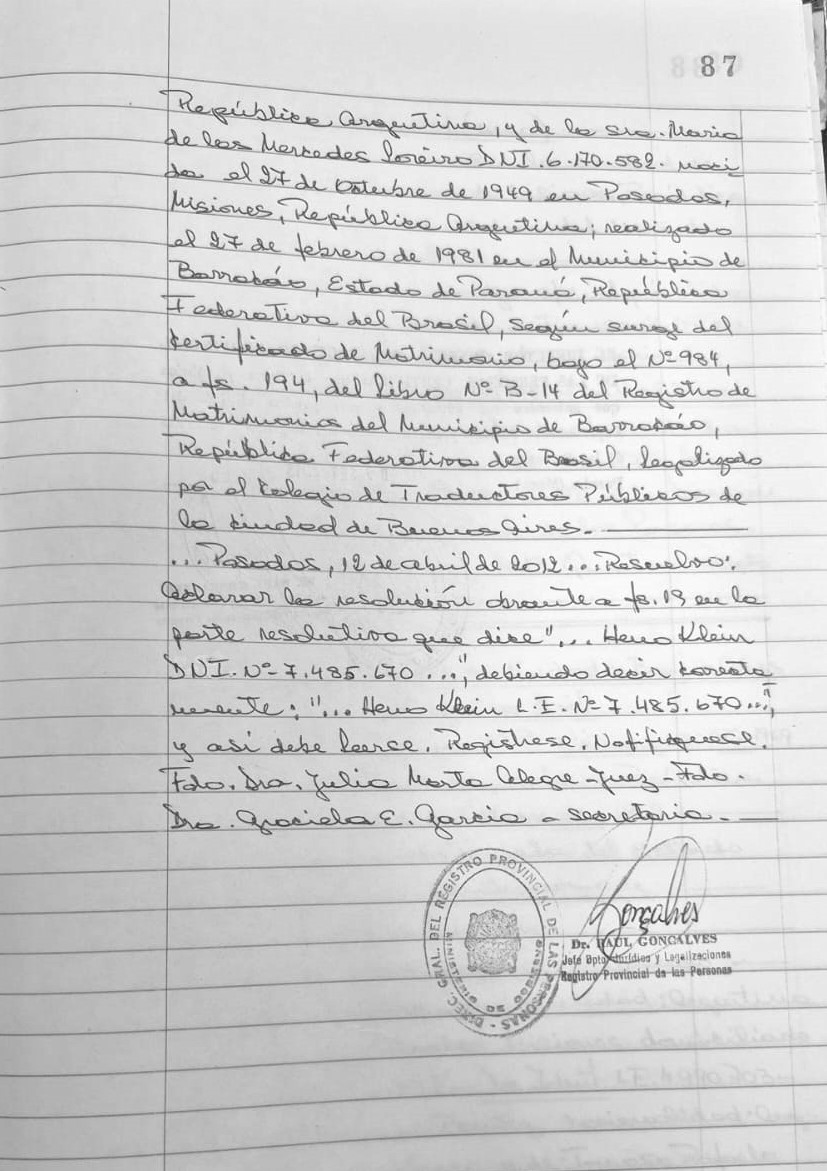 87
República Argentina, y de la sra. Maria
de las Mercedes Loreiro DNI.6.170.582. naci
da el 27 de Octubre de 1949 en Posadas,
Misiones, República Argentina; realizado
el 27 de febrero de 1981 en el Municipio de
Barracão, Estado de Paraná, República
Federativa del Brasil, según surge del
Certificado de Matrimonio, bajo el Nº 984,
a fs. 194, del libro Nº B-14 del Registro de
Matrimonios del Municipio de Barracão,
República Federativa del Brasil, legalizado
por el Colegio de Traductores Públicos de
la Ciudad de Buenos Aires.
...Posadas, 12 de abril de 2012...Resuelvo:
Aclarar la resolución obrante a fs. 19 en la
parte resolutiva que dice "... Heno Klein
DNI. Nº 7.485.670 ...", debiendo decir correcta
mente: "... Heno Klein L.E. Nº 7.485.670..."
y así debe leerce. Regístrese. Notifíquese.
Fdo. Dra. Julia Marta Alegre - Juez - Fdo.
Dra. Graciela E. Garcia - secretaria.
DIREC. GRAL. DEL REGISTRO PROVINCIAL DE LAS PERSONAS
MINISTERIO DE GOBIERNO
Gonçalves
Dr. RAUL GONCALVES
Jefe Dpto. Jurídico y Legalizaciones
Registro Provincial de las Personas